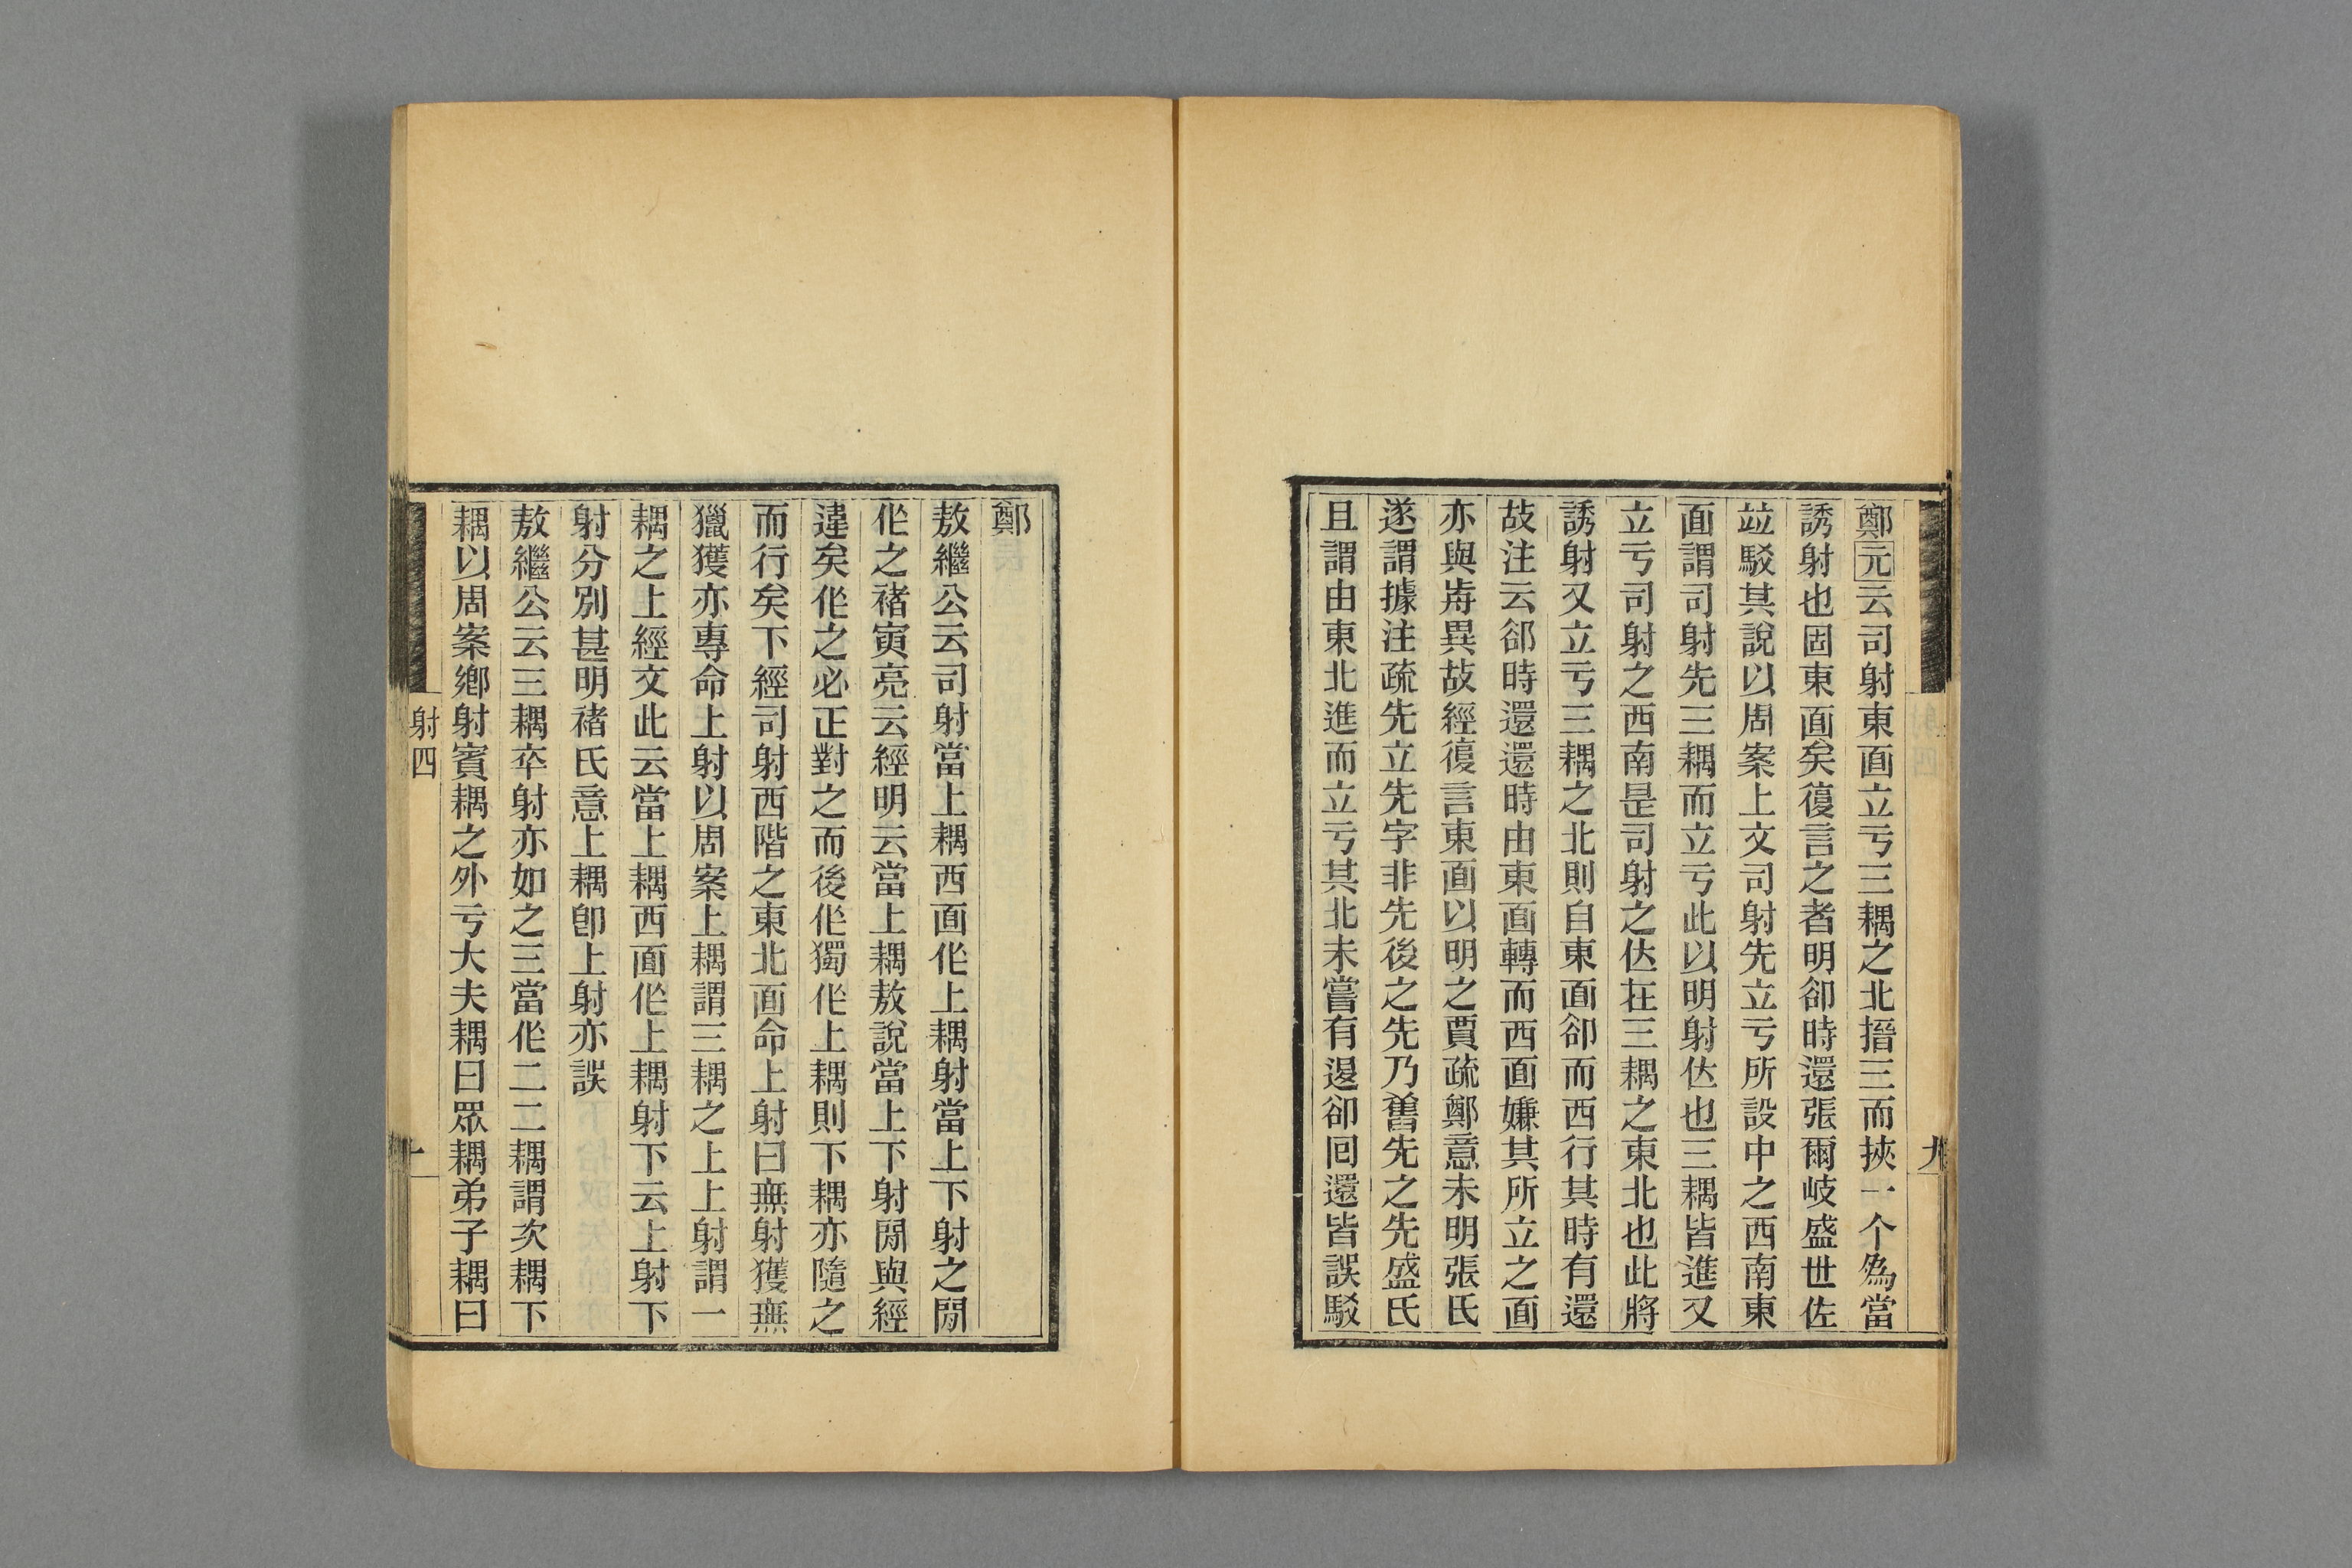 鄭元云司射東面立亏三耦之北搢三而挾一个爲當
誘射也固東面矣復言之者明卻時還張爾岐盛世佐
竝駁其說以周案上文司射先立亏所設中之西南東
面謂司射先三耦而立亏此以明射位也三耦皆進又
立亏司射之西南是司射之位在三耦之東北也此將
誘射又立亏三耦之北則自東面卻而西行其時有還
故注云卻時還還時由東面轉而西面嫌其所立之面
亦與歬異故經復言東面以明之賈疏鄭意未明張氏
遂謂據注疏先立先字非先後之先乃舊先之先盛氏
且謂由東北進而立亏其北未嘗有退卻回還皆誤駁
九
鄭
敖繼公云司射當上耦西面作上耦射當上下射之閒
作之褚寅亮云經明云當上耦敖說當上下射閒與經
違矣作之必正對之而後作獨作上耦則下耦亦隨之
而行矣下經司射西階之東北面命上射曰無射獲無
獵獲亦專命上射以周案上耦謂三耦之上上射謂一
耦之上經文此云當上耦西面作上耦射下云上射下
射分別甚明褚氏意上耦卽上射亦誤
敖繼公云三耦卒射亦如之三當作二二耦謂次耦下
耦以周案鄉射賓耦之外亏大夫耦曰眾耦弟子耦曰
射四